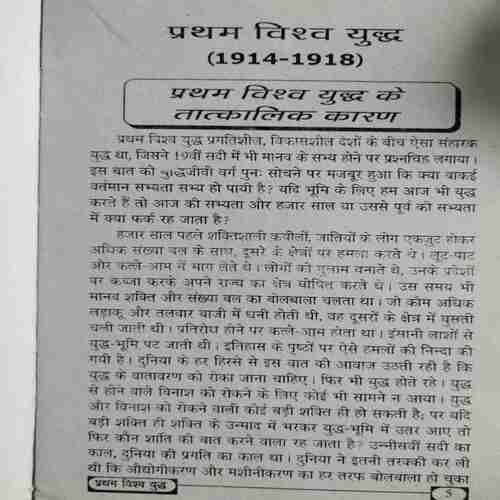 प्रथम विश्व युद्ध
(1914-1918)
प्रथम विश्व युद्ध के
तात्कालिक कारण
प्रथम विश्व युद्ध प्रगतिशील, विकासशील देशों के बीच ऐसा संहारक
युद्ध था, जिसने 19वीं सदी में भी मानव के सभ्य होने पर प्रश्नचिह्न लगाया।
इस बात को बुद्धिजीवी वर्ग पुनः सोचने पर मजबूर हुआ कि क्या वाकई
वर्तमान सभ्यता सभ्य हो पायी है? यदि भूमि के लिए हम आज भी युद्ध
करते हैं तो आज की सभ्यता और हजार साल या उससे पूर्व की सभ्यता
में क्या फर्क रह जाता है?
हजार साल पहले शक्तिशाली कबीलों, जातियों के लोग एकजुट होकर
अधिक संख्या बल के साथ, दूसरे के क्षेत्रों पर हमला करते थे। लूट-पाट
और कत्ले-आम में भाग लेते थे। लोगों को गुलाम बनाते थे, उनके प्रदेशों
पर कब्जा करके अपने राज्य का क्षेत्र घोषित करते थे। उस समय भी
मानव शक्ति और संख्या बल का बोलबाला चलता था। जो कौम अधिक
लड़ाकू और तलवार बाजी में धनी होती थी, वह दूसरों के क्षेत्र में घुसती
चली जाती थी। प्रतिरोध होने पर कत्ले-आम होता था। इंसानी लाशों से
युद्ध-भूमि पट जाती थी। इतिहास के पृष्ठों पर ऐसे हमलों की निन्दा की
गयी है। दुनिया के हर हिस्से से इस बात की आवाज उठती रही है कि
युद्ध के वातावरण को रोका जाना चाहिए। फिर भी युद्ध होते रहे। युद्ध
से होने वाले विनाश को रोकने के लिए कोई भी सामने न आया। युद्ध
और विनाश को रोकने वाली कोई बड़ी शक्ति ही हो सकती है; पर यदि
बड़ी शक्ति ही शक्ति के उन्माद में भरकर युद्ध-भूमि में उतर आए तो
फिर कौन शांति की बात करने वाला रह जाता है? उन्नीसवीं सदी का
काल, दुनिया की प्रगति का काल था। दुनिया ने इतनी तरक्की कर ली
थी कि औद्योगीकरण और मशीनीकरण का हर तरफ बोलबाला हो चुका
प्रथम विश्व युद्ध
5